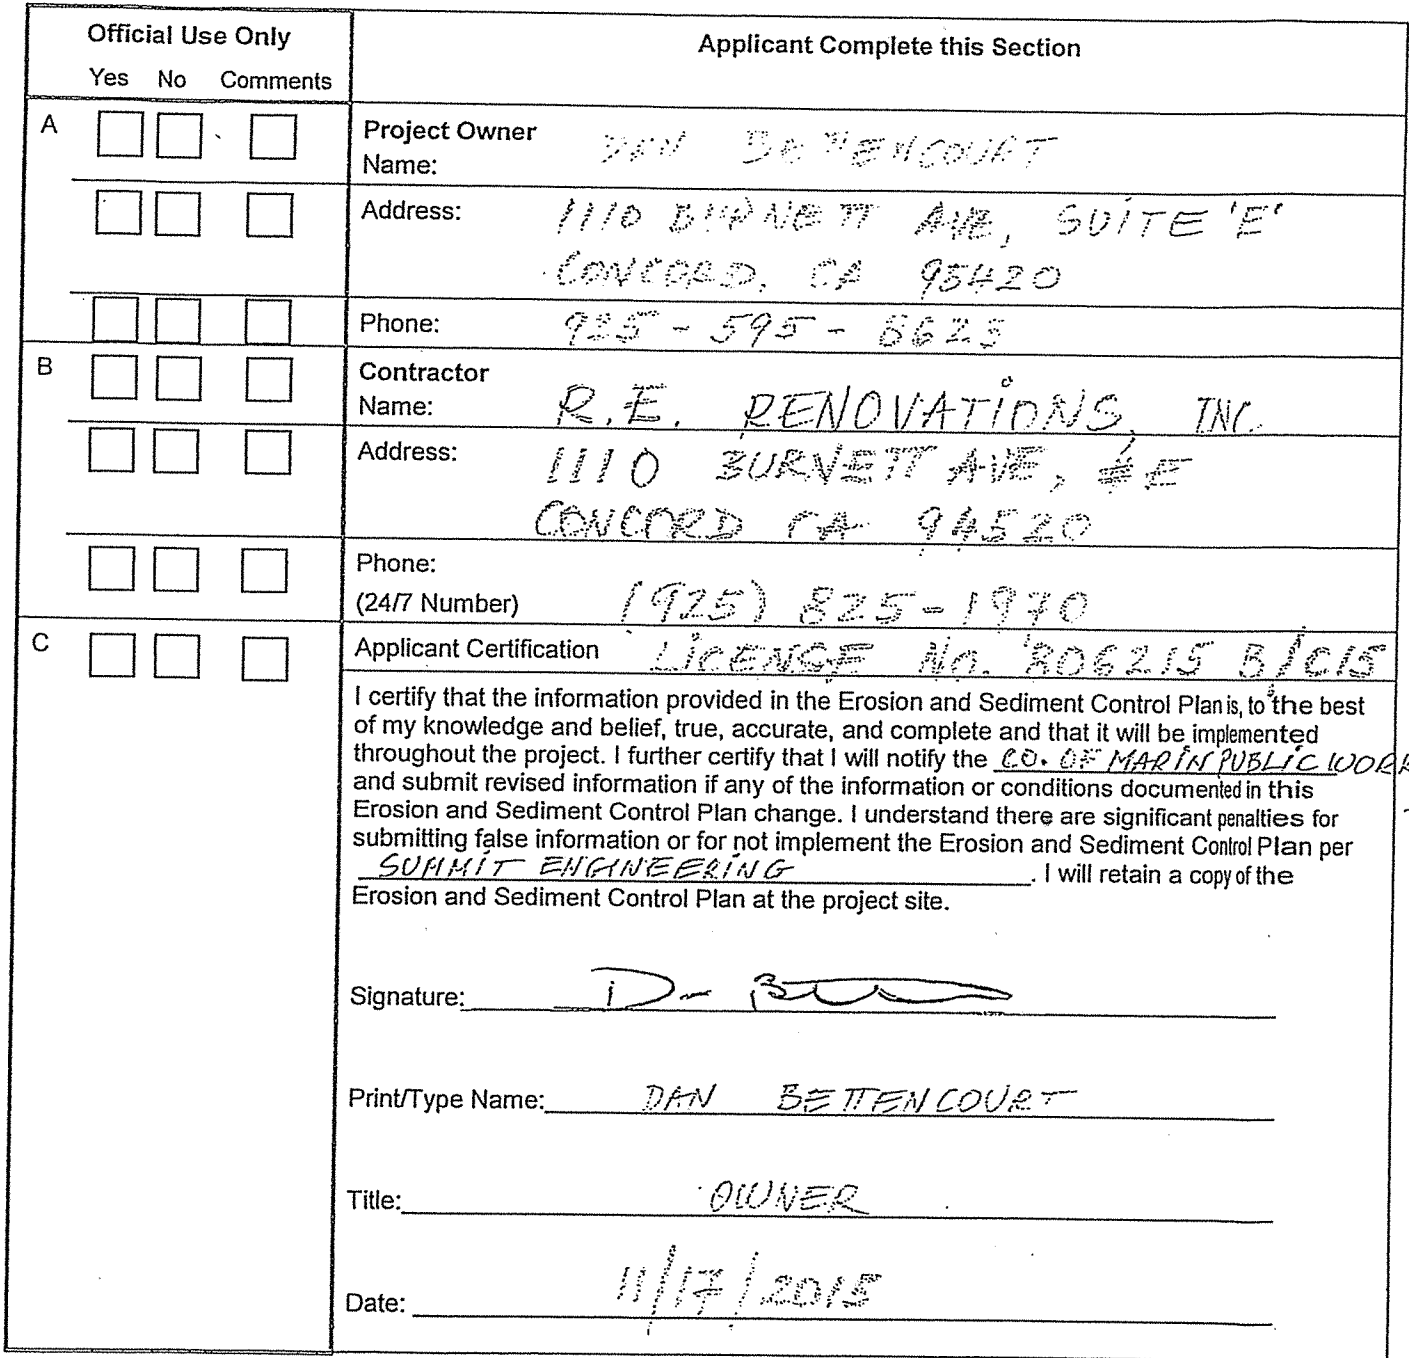 Official Use Only
Applicant Complete this Section
Yes No Comments
A
Project Owner
Name: DAN BETTENCOURT
Address: 1110 BURNETT AVE, SUITE 'E'
CONCORD, CA 95420
Phone: 925-595-8623
B
Contractor
Name: R.E. RENOVATIONS, INC.
Address: 1110 BURNETT AVE, #E
CONCORD CA 94520
Phone:
(24/7 Number) (925) 825-1970
C
Applicant Certification LICENSE No. 806215 B/C15
I certify that the information provided in the Erosion and Sediment Control Plan is, to the best
of my knowledge and belief, true, accurate, and complete and that it will be implemented
throughout the project. I further certify that I will notify the CO. OF MARIN PUBLIC WORK
and submit revised information if any of the information or conditions documented in this
Erosion and Sediment Control Plan change. I understand there are significant penalties for
submitting false information or for not implement the Erosion and Sediment Control Plan per
SUMMIT ENGINEERING. I will retain a copy of the
Erosion and Sediment Control Plan at the project site.
Signature:
Print/Type Name: DAN BETTENCOURT
Title: OWNER
Date: 11/17/2015